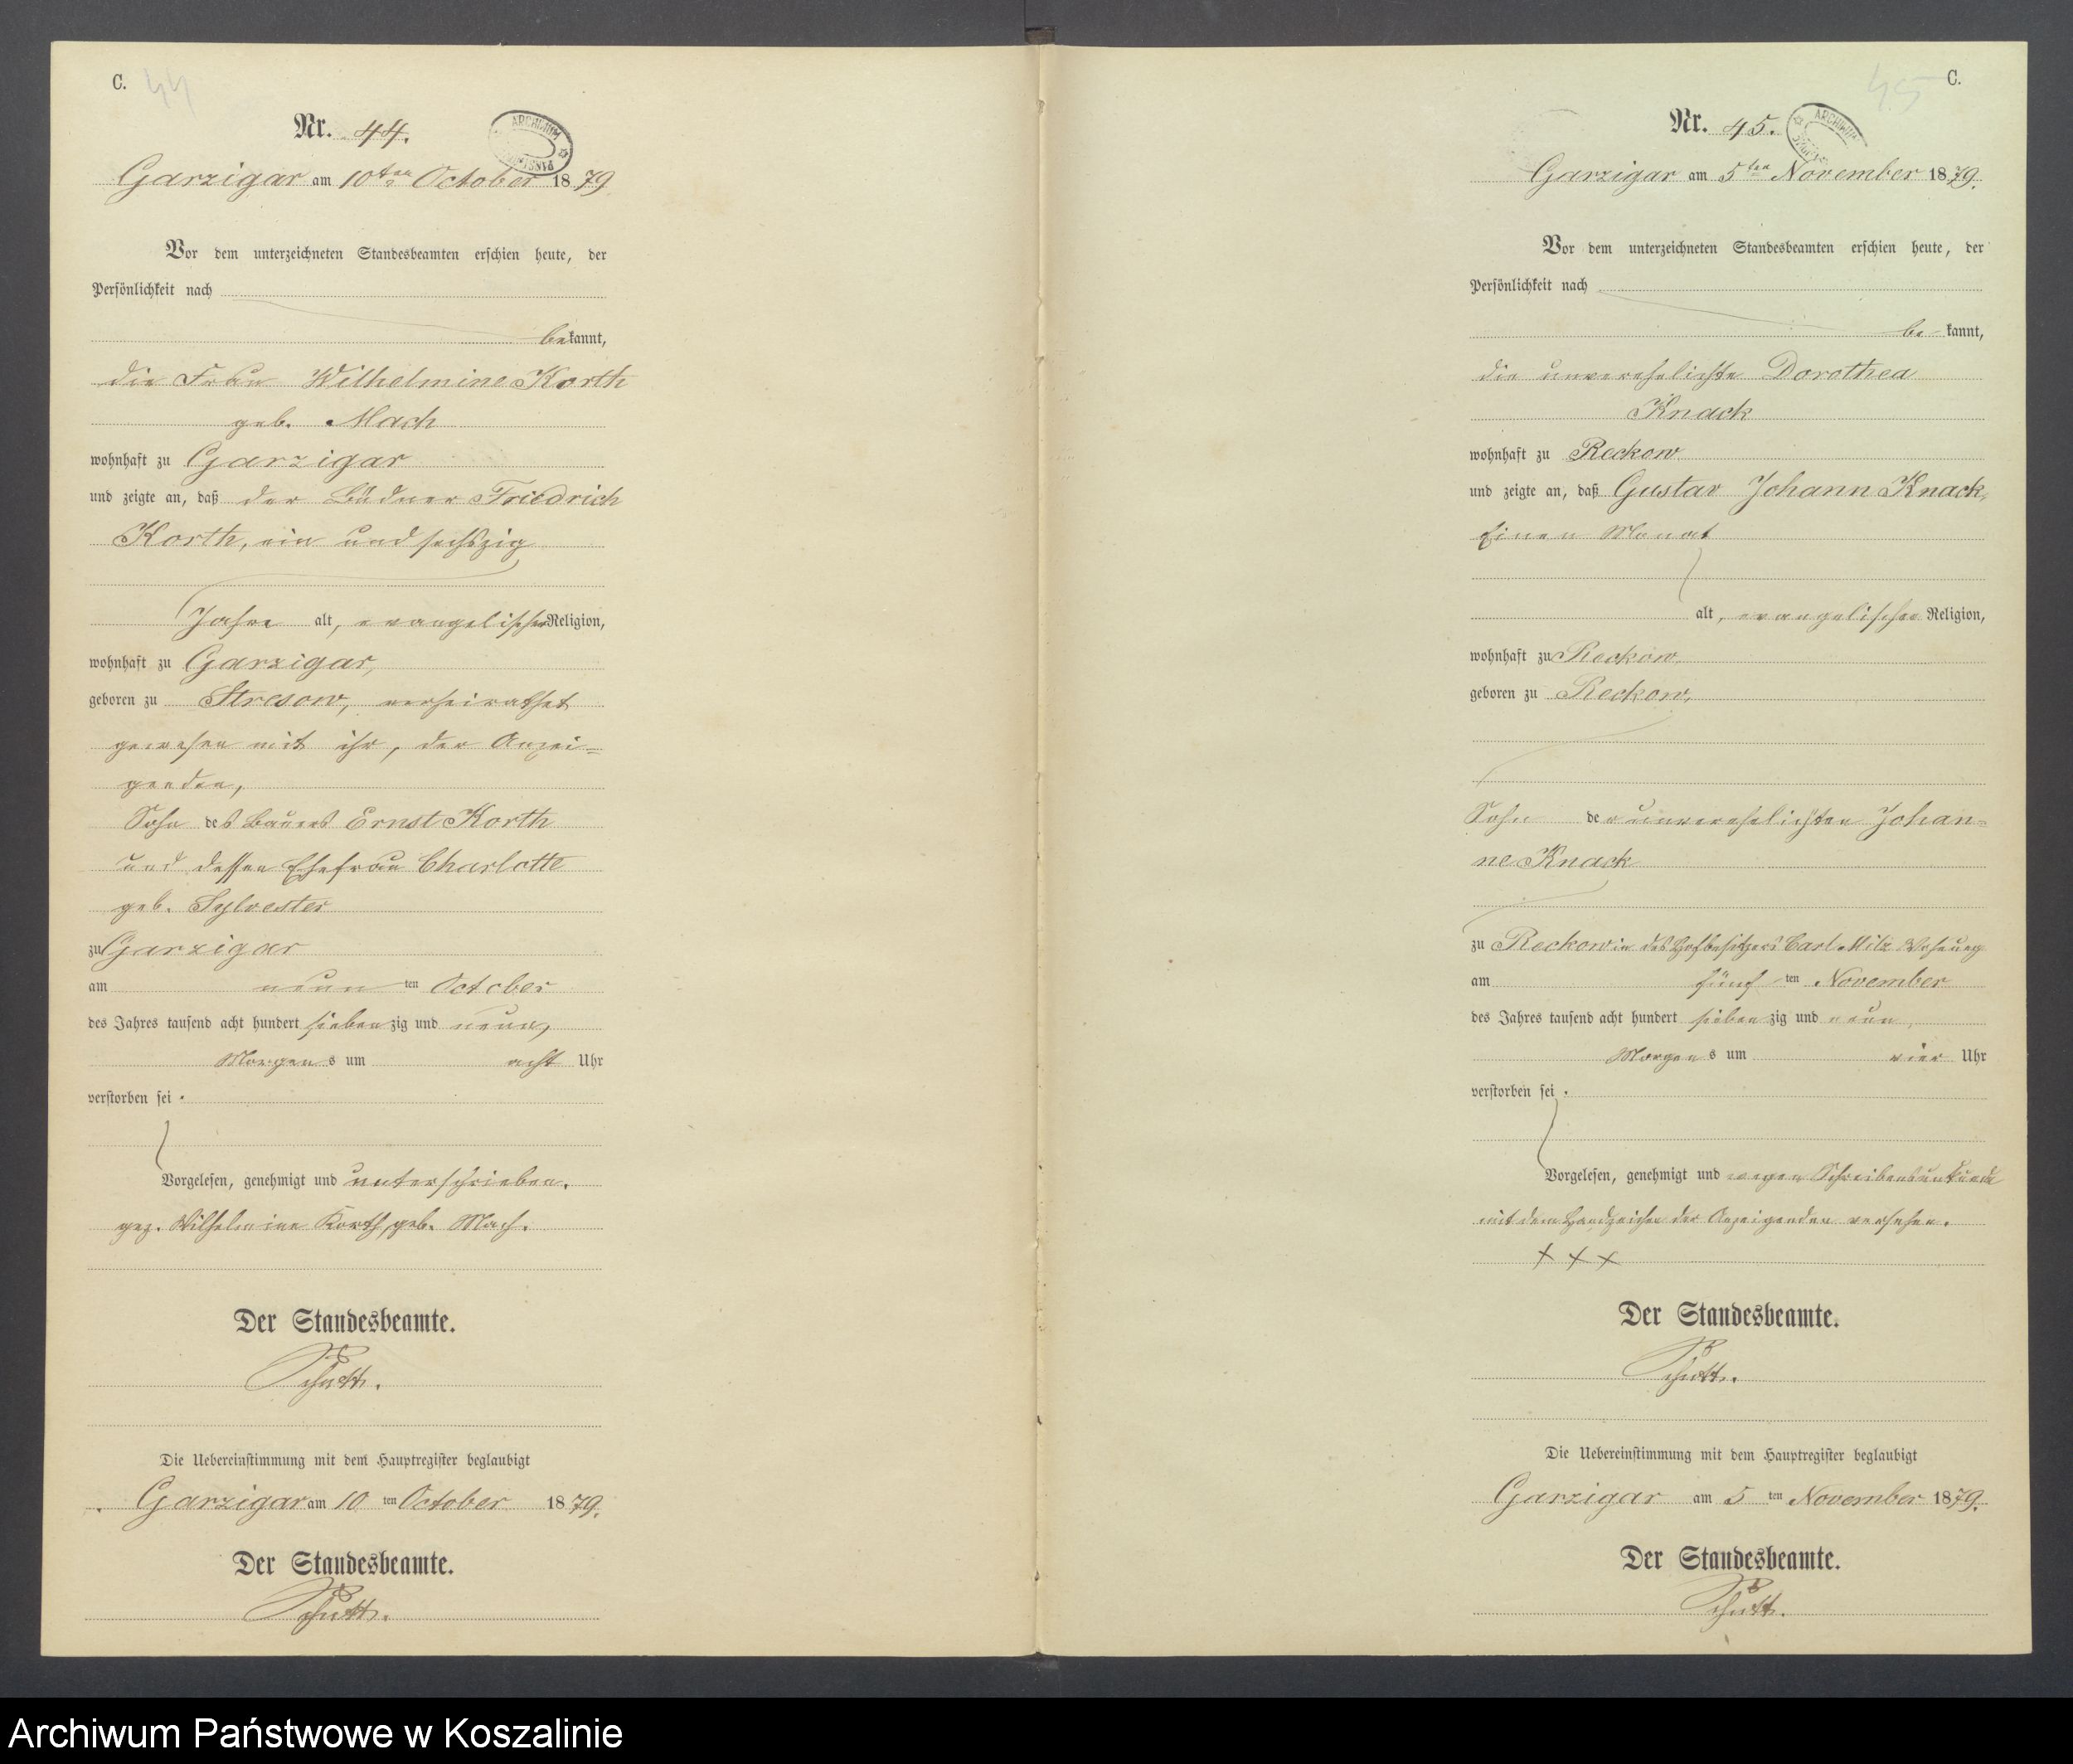 C. 44
Nr. 44.
ARCHIWUM
Garzigar am 10ten October 1879
Vor dem unterzeichneten Standesbeamten erschien heute, der
Persönlichkeit nach
bekannt,
die Frau Wilhelmine Korth
geb. Mach
wohnhaft zu Garzigar
und zeigte an, daß der Büdner Friedrich
Korth, ein und sechszig
Jahre alt, evangelischer Religion,
wohnhaft zu Garzigar,
geboren zu Stresow, verheirathet
gewesen mit ihr, der Anzei=
genden,
Sohn des Bauers Ernst Korth
und dessen Ehefrau Charlotte
geb. Sylvester
zu Garzigar
am neunten October
des Jahres tausend acht hundert siebenzig und neun,
Morgens um acht Uhr
verstorben sei.
Vorgelesen, genehmigt und unterschrieben.
gez. Wilhelmine Korth, geb. Mach.
Der Standesbeamte.
Die Uebereinstimmung mit dem Hauptregister beglaubigt
Garzigar am 10ten October 1879.
Der Standesbeamte.
45 C.
Nr. 45.
ARCHIWUM
Garzigar am 5ten November 1879.
Vor dem unterzeichneten Standesbeamten erschien heute, der
Persönlichkeit nach
bekannt,
die unverehelichte Dorothea
Knack
wohnhaft zu Reckow
und zeigte an, daß Gustav Johann Knack,
einen Monat
alt, evangelischer Religion,
wohnhaft zu Reckow,
geboren zu Reckow,
Sohn der unverehelichten Johan=
ne Knack
zu Reckow in des Hofbesitzers Carl Milz Wohnung
am fünften November
des Jahres tausend acht hundert siebenzig und neun,
Morgens um vier Uhr
verstorben sei.
Vorgelesen, genehmigt und wegen Schreibensunkunde
mit dem Handzeichen der Anzeigenden versehen.
+ + +
Der Standesbeamte.
Die Uebereinstimmung mit dem Hauptregister beglaubigt
Garzigar am 5ten November 1879.
Der Standesbeamte.
Archiwum Państwowe w Koszalinie